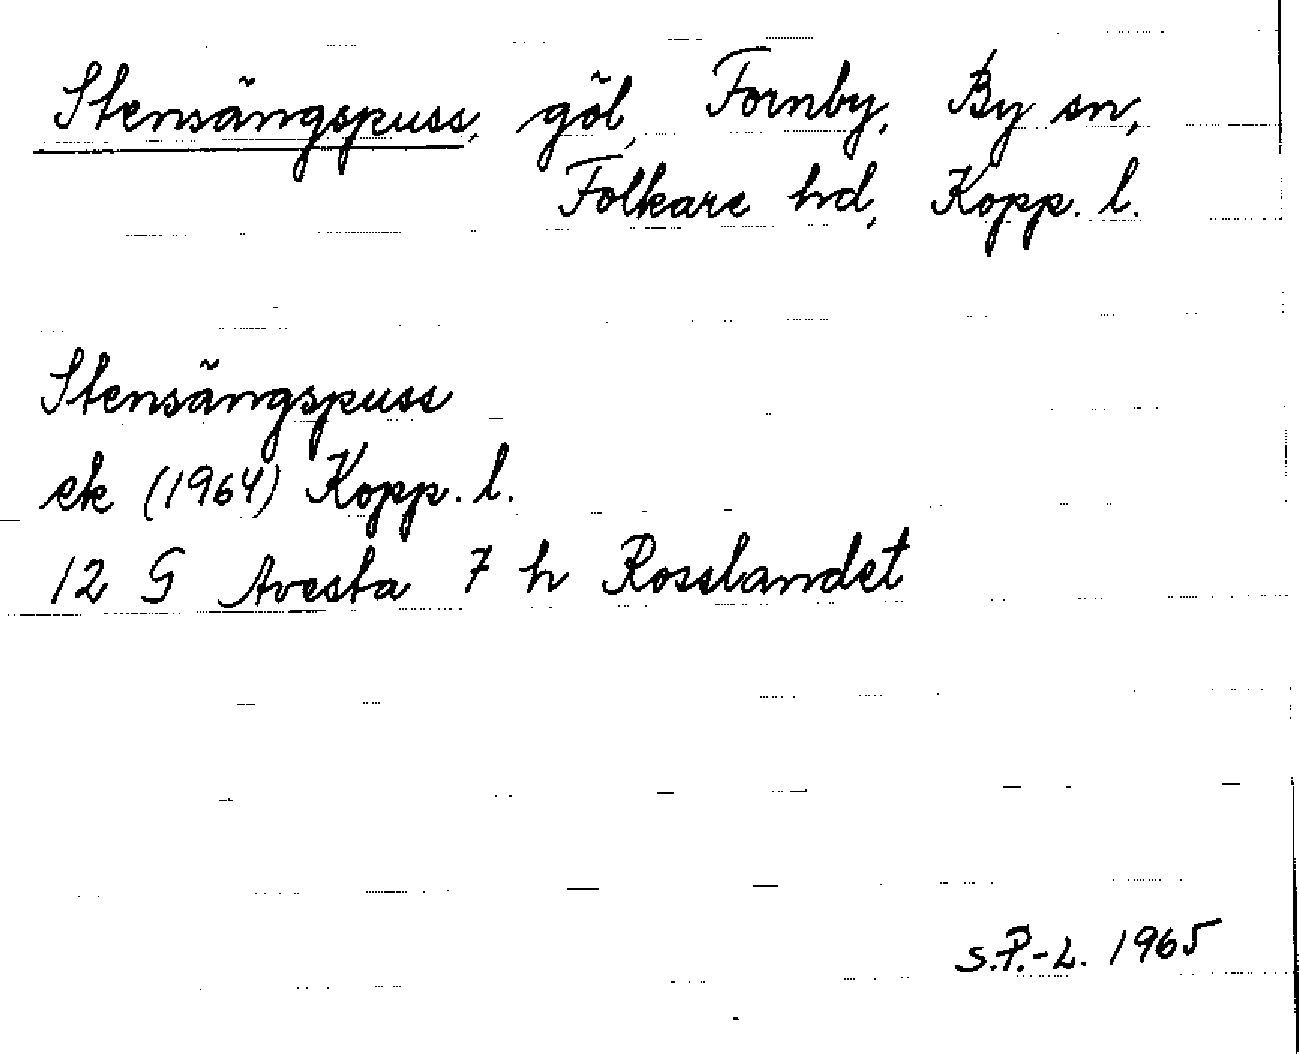 Stensängspuss, göl, Fornby, By sn,
Folkare hd, Kopp. l.
Stensängspuss
ek (1964) Kopp. l.
12 G Avesta 7 h Rosslandet
S.P.-L. 1965